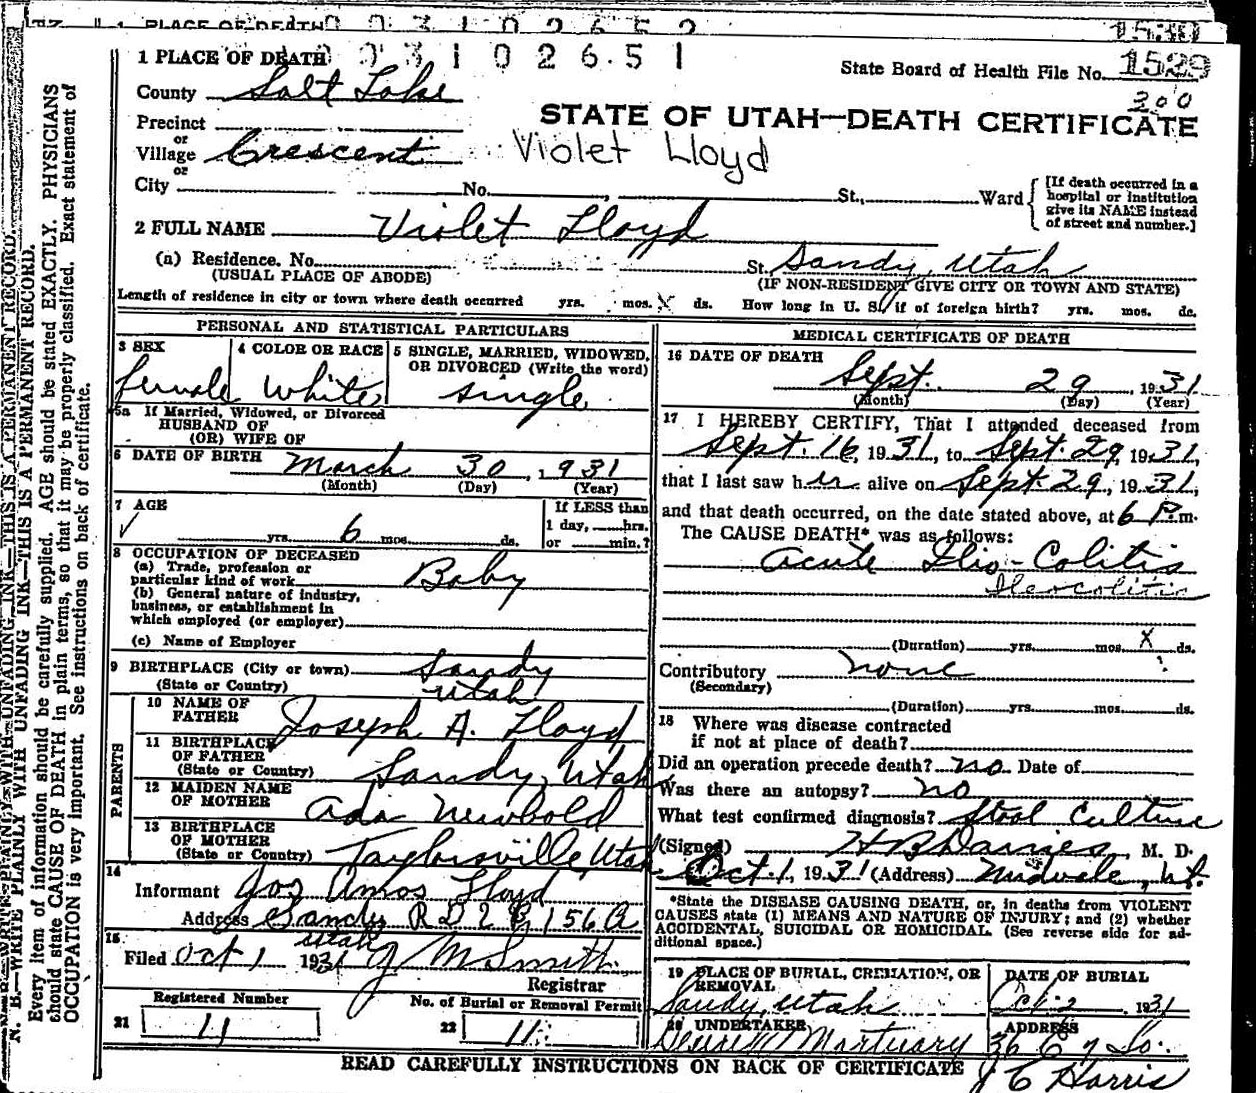 1 PLACE OF DEATH 0 0 3 1 0 2 6 5 2
1530
1 PLACE OF DEATH 0 0 3 1 0 2 6 5 1
State Board of Health File No. 1529
County Salt Lake
300
STATE OF UTAH—DEATH CERTIFICATE
Precinct
or
Village Crescent
Violet Lloyd
or
City No. St., Ward
[If death occurred in a
hospital or institution
give its NAME instead
of street and number.]
2 FULL NAME Violet Lloyd
(a) Residence. No. St. Sandy, Utah
(USUAL PLACE OF ABODE) (IF NON-RESIDENT GIVE CITY OR TOWN AND STATE)
Length of residence in city or town where death occurred yrs. mos. X ds. How long in U. S. if of foreign birth? yrs. mos. ds.
PERSONAL AND STATISTICAL PARTICULARS
3 SEX 4 COLOR OR RACE 5 SINGLE, MARRIED, WIDOWED,
OR DIVORCED (Write the word)
female White single
5a If Married, Widowed, or Divorced
HUSBAND OF
(OR) WIFE OF
6 DATE OF BIRTH March 30, 1931
(Month) (Day) (Year)
7 AGE If LESS than
1 day, hrs.
yrs. 6 mos. ds. or min.?
8 OCCUPATION OF DECEASED
(a) Trade, profession or
particular kind of work Baby
(b) General nature of industry,
business, or establishment in
which employed (or employer)
(c) Name of Employer
9 BIRTHPLACE (City or town) Sandy
(State or Country) Utah
PARENTS
10 NAME OF
FATHER Joseph A. Lloyd
11 BIRTHPLACE
OF FATHER
(State or Country) Sandy, Utah
12 MAIDEN NAME
OF MOTHER Ada Newbold
13 BIRTHPLACE
OF MOTHER
(State or Country) Taylorsville, Utah
14
Informant Jos Amos Lloyd
Address Sandy R D 2 B 156 A
Utah
15
Filed Oct 1 1931 J M Smith
Registrar
Registered Number No. of Burial or Removal Permit
21 11 22 11
MEDICAL CERTIFICATE OF DEATH
16 DATE OF DEATH
Sept. 29, 1931
(Month) (Day) (Year)
17 I HEREBY CERTIFY, That I attended deceased from
Sept. 16, 1931, to Sept. 29, 1931,
that I last saw her alive on Sept 29, 1931,
and that death occurred, on the date stated above, at 6 P.m.
The CAUSE DEATH* was as follows:
Acute Ilio-Colitis
Ileocolitis
(Duration) yrs. mos. X ds.
Contributory none ?
(Secondary)
(Duration) yrs. mos. ds.
18 Where was disease contracted
if not at place of death?
Did an operation precede death? no Date of
Was there an autopsy? no
What test confirmed diagnosis? Stool Culture
(Signed) M. D.
Oct 1, 1931 (Address) Midvale, Ut.
*State the DISEASE CAUSING DEATH, or, in deaths from VIOLENT
CAUSES state (1) MEANS AND NATURE OF INJURY; and (2) whether
ACCIDENTAL, SUICIDAL OR HOMICIDAL. (See reverse side for ad-
ditional space.)
19 PLACE OF BURIAL, CREMATION, OR
REMOVAL
Sandy, Utah
DATE OF BURIAL
Oct. 2 1931
20 UNDERTAKER
Mortuary
ADDRESS
36 E 7 So.
J C Harris
READ CAREFULLY INSTRUCTIONS ON BACK OF CERTIFICATE
N. B.—WRITE PLAINLY WITH UNFADING INK—THIS IS A PERMANENT RECORD.
Every item of information should be carefully supplied. AGE should be stated EXACTLY. PHYSICIANS
should state CAUSE OF DEATH in plain terms, so that it may be properly classified. Exact statement of
OCCUPATION is very important. See instructions on back of certificate.